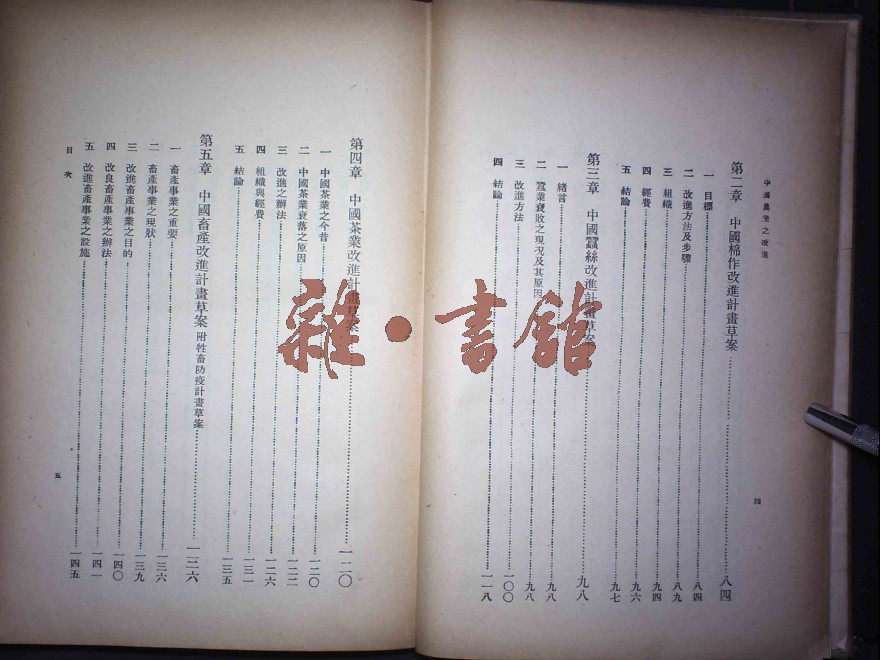 中國農業之改進
第二章 中國棉作改進計畫草案 八四
一 目標 八四
二 改進方法及步驟 八九
三 組織 九四
四 經費 九六
五 結論 九七
第三章 中國蠶絲改進計畫草案 九八
一 緒言 九八
二 蠶業衰敗之現況及其原因 九八
三 改進方法 一〇〇
四 結論 一一八
四
第四章 中國茶業改進計畫草案 一二〇
一 中國茶業之今昔 一二〇
二 中國茶業衰落之原因 一二二
三 改進之辦法 一二六
四 組織與經費 一三一
五 結論 一三五
第五章 中國畜產改進計畫草案 附牲畜防疫計畫草案 一三六
一 畜產事業之重要 一三六
二 畜產事業之現狀 一三九
三 改進畜產事業之目的 一四〇
四 改良畜產事業之辦法 一四一
五 改進畜產事業之設施 一四五
目次
五
雜·書館